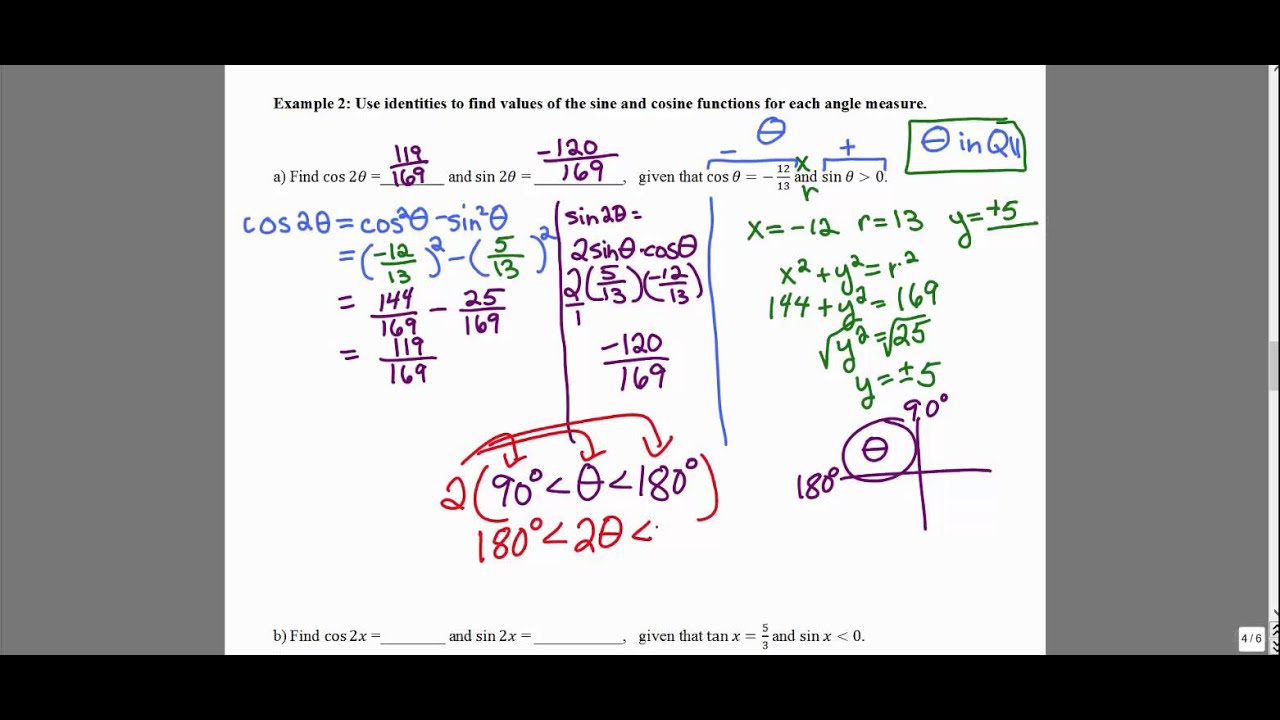 Example 2: Use identities to find values of the sine and cosine functions for each angle measure.
− θ +
θ in QII
a) Find cos 2θ = 119/169 and sin 2θ = -120/169, given that cos θ = −12/13 and sin θ > 0.
x
r
cos2θ = cos²θ - sin²θ
= (-12/13)² - (5/13)²
= 144/169 - 25/169
= 119/169
sin2θ =
2sinθ·cosθ
2/1 (5/13)(-12/13)
-120/169
x = -12 r = 13 y = +5
x² + y² = r²
144 + y² = 169
√y² = √25
y = ±5
90°
θ
180°
2(90° < θ < 180°)
180° < 2θ <
b) Find cos 2x =________ and sin 2x = ___________, given that tan x = 5/3 and sin x < 0.
4 / 6